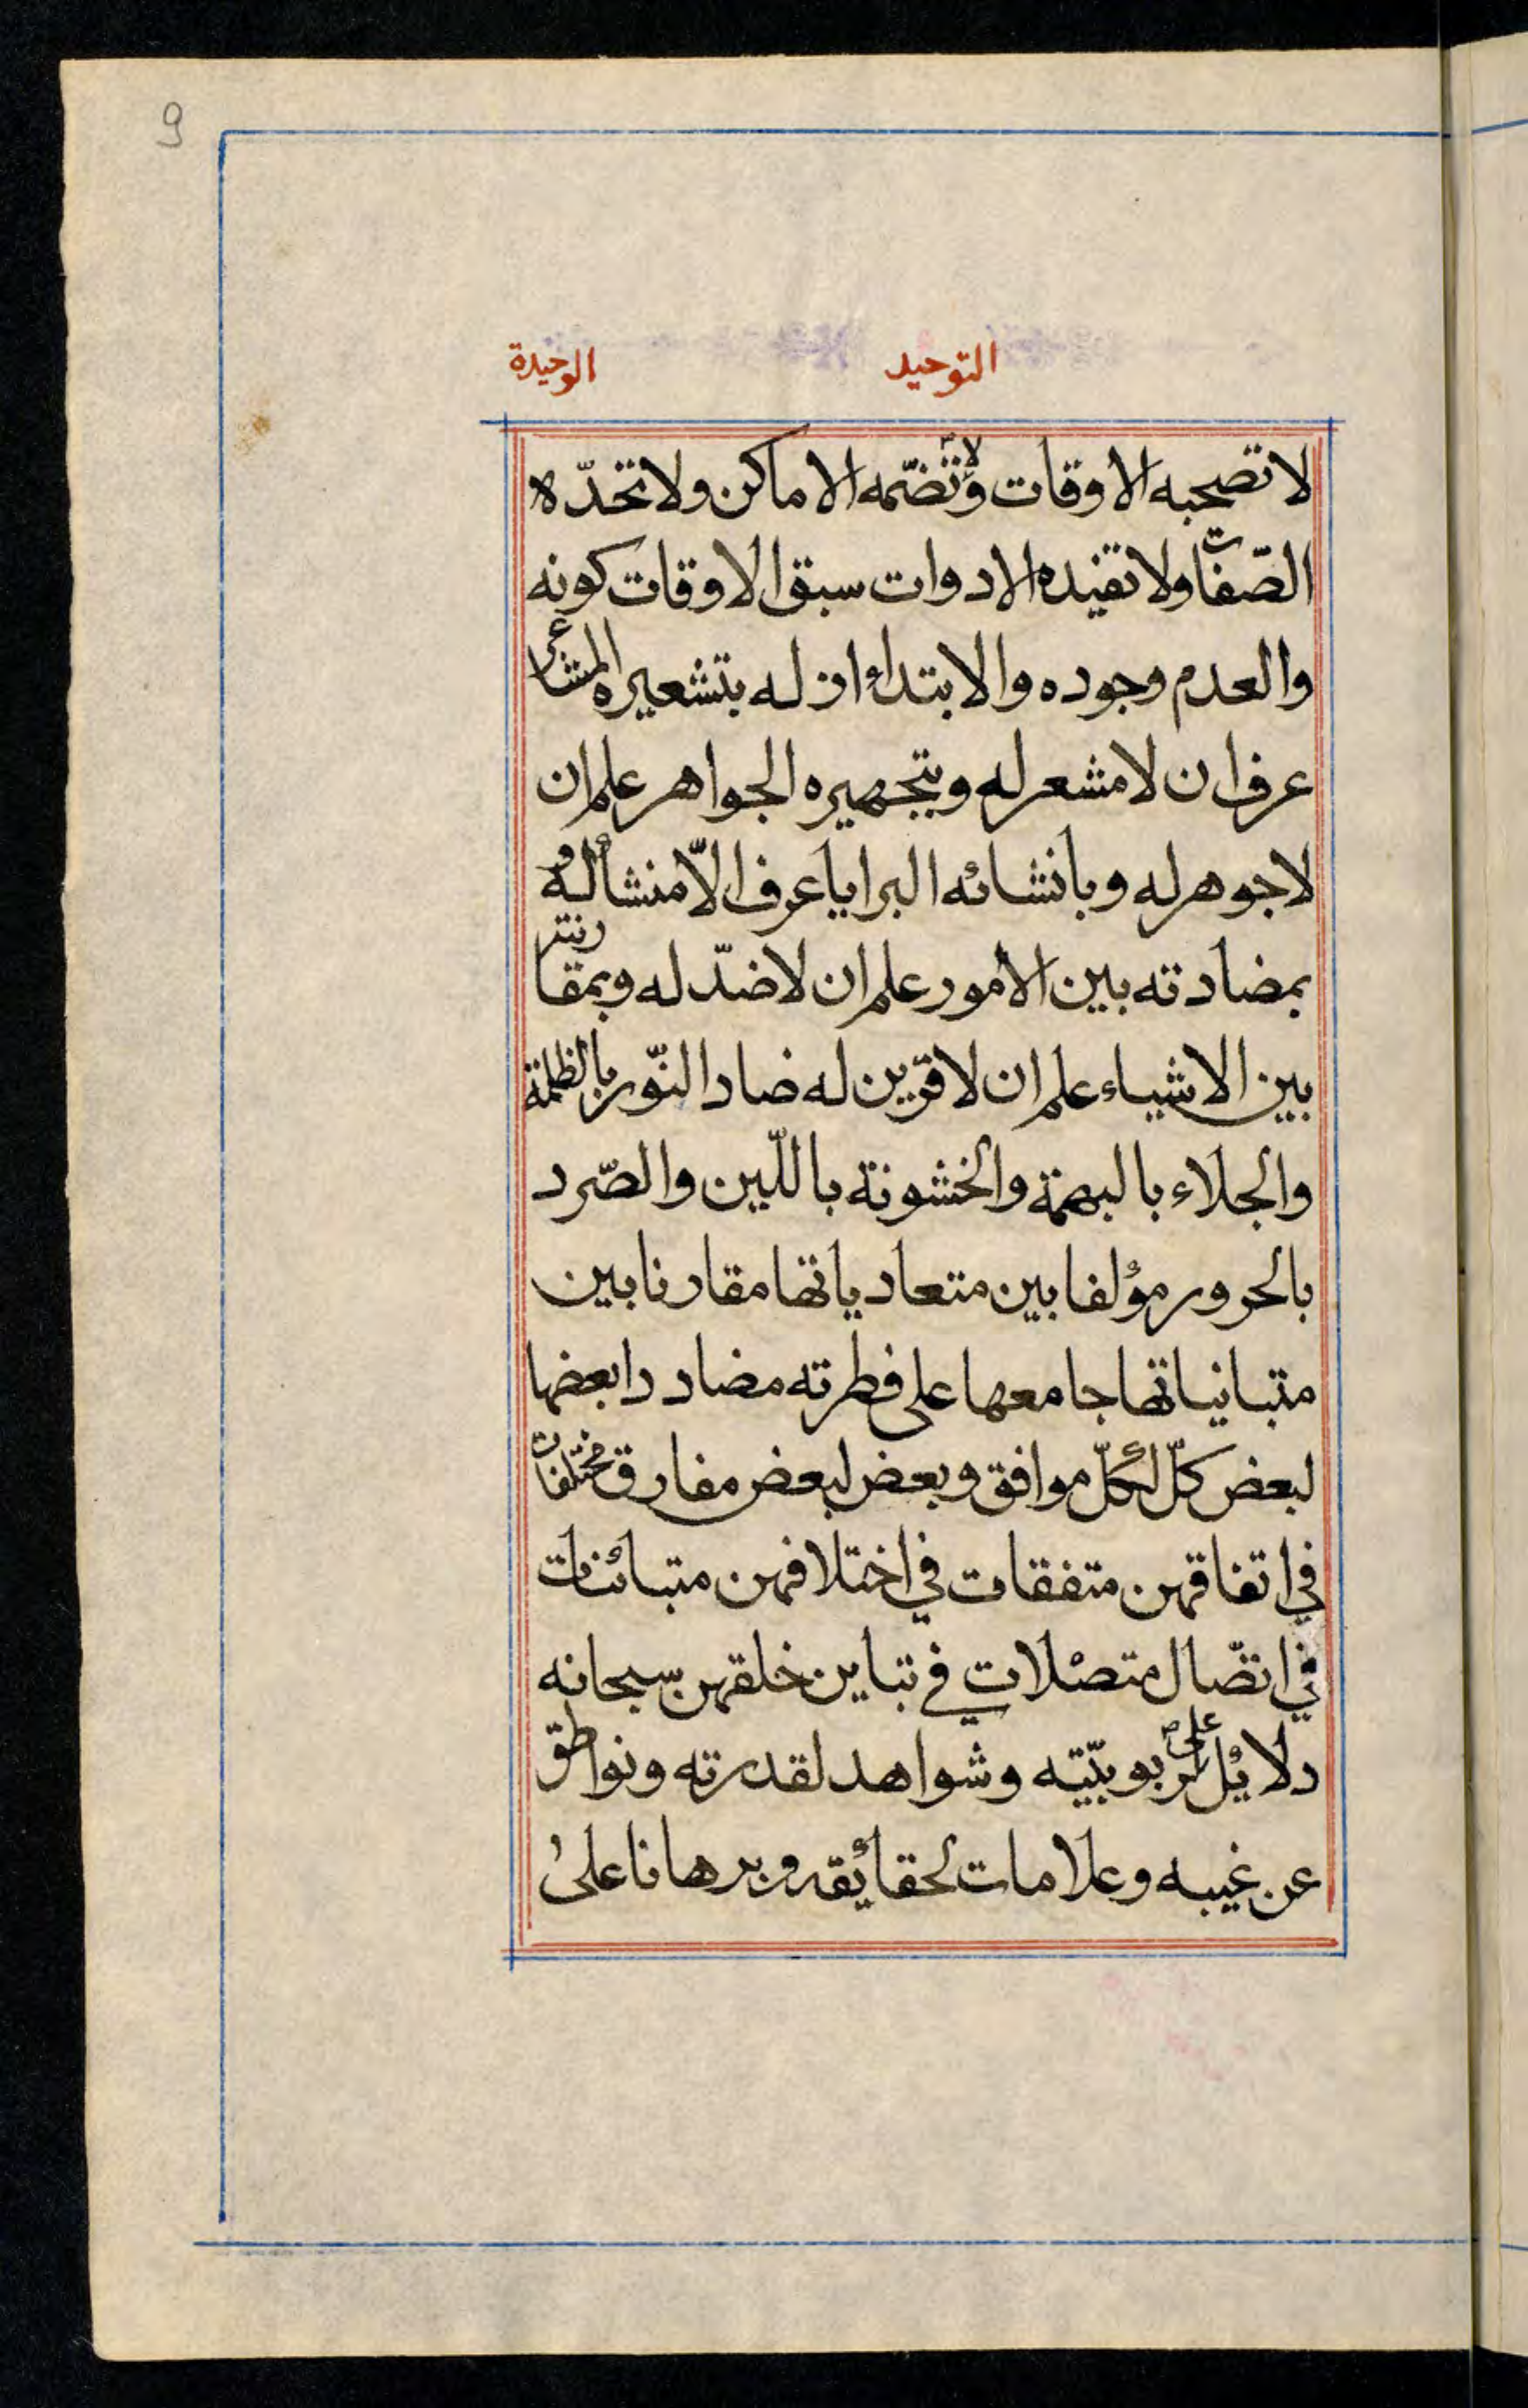 9
التوحيد الوحيدة
لا تصحبه الاوقات ولا تضمّه الاماكن ولا تحدّه
الصّفات ولا تفيده الادوات سبق الاوقات كونه
والعدم وجوده والابتداء ازله بتشعيره المشاعر
عرف ان لا مشعر له وبتجهيره الجواهر علم ان
لا جوهر له وبانشائه البرايا عرف الاّ منشأ له و
بمضادته بين الامور علم ان لا ضدّ له وبمقارنته
بين الاشياء علم ان لا قرين له ضاد النّور بالظلمة
والجلاء بالبهمة والخشونة باللّين والصّرد
بالحرور مؤلفا بين متعادياتها مقارنا بين
متبانياتها جامعها على فطرته مضاددا بعضها
لبعض كلّ لكلّ موافق وبعض لبعض مفارق مختلفات
في اتفاقهن متفقات في اختلافهن متبائنات
في اتصّال متصّلات في تباين خلقهن سبحانه
دلايل على ربوبيّته وشواهد لقدرته ونواطق
عن غيبه وعلامات لحقائيقه وبرهانا على